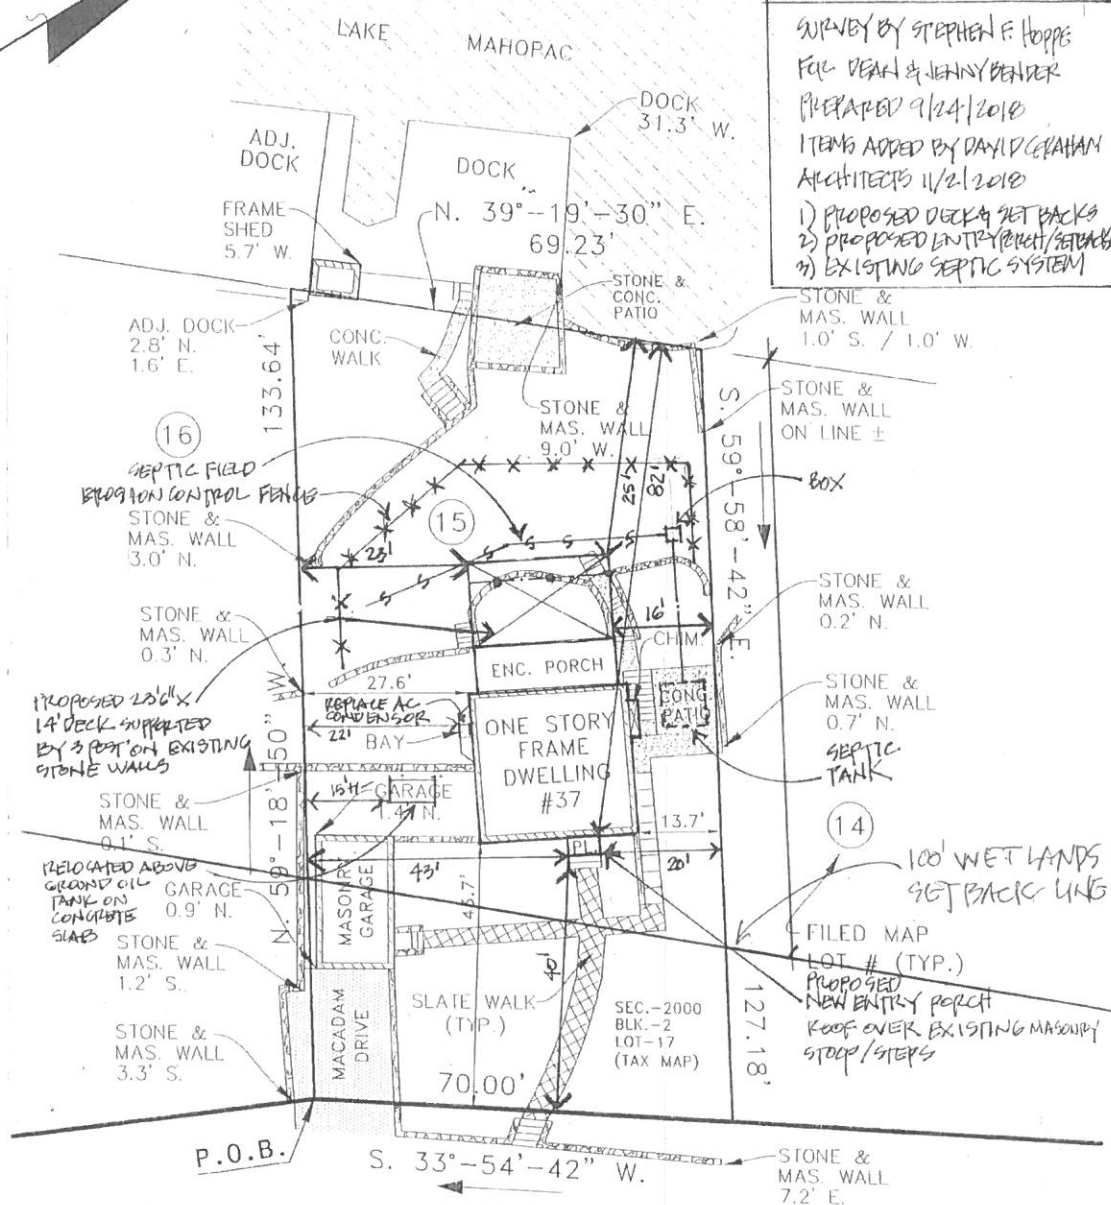 LAKE MAHOPAC
SURVEY BY STEPHEN F. HOPPE
FOR DEAN & JENNY BENDER
PREPARED 9/24/2018
ITEMS ADDED BY DAVID GRAHAM
ARCHITECTS 11/2/2018
1) PROPOSED DECK & SET BACKS
2) PROPOSED ENTRY PORCH/SETBACKS
3) EXISTING SEPTIC SYSTEM
DOCK
31.3' W.
ADJ.
DOCK
DOCK
FRAME
SHED
5.7' W.
N. 39°-19'-30" E.
69.23'
STONE &
CONC.
PATIO
STONE &
MAS. WALL
1.0' S. / 1.0' W.
ADJ. DOCK
2.8' N.
1.6' E.
CONC.
WALK
133.64'
STONE &
MAS. WALL
9.0' W.
STONE &
MAS. WALL
ON LINE ±
S. 59°-58'-42" E.
16
SEPTIC FIELD
EROSION CONTROL FENCE
STONE &
MAS. WALL
3.0' N.
15
25'
82'
BOX
23'
S S S S S S
STONE &
MAS. WALL
0.3' N.
16'
CHIM.
STONE &
MAS. WALL
0.2' N.
ENC. PORCH
PROPOSED 23'6" X
14' DECK SUPPORTED
BY 3 POST ON EXISTING
STONE WALLS
27.6'
REPLACE AC
CONDENSOR
22'
BAY
ONE STORY
FRAME
DWELLING
#37
CONC.
PATIO
STONE &
MAS. WALL
0.7' N.
SEPTIC
TANK
N. 59°-18'-50" W.
STONE &
MAS. WALL
0.1' S.
15'±
GARAGE
1.4' N.
13.7'
14
RELOCATED ABOVE
GROUND OIL
TANK ON
CONCRETE
SLAB
GARAGE
0.9' N.
43'
PL.
20'
100' WETLANDS
SETBACK LINE
MASONRY
GARAGE
45.7'
40'
STONE &
MAS. WALL
1.2' S.
FILED MAP
LOT # (TYP.)
PROPOSED
NEW ENTRY PORCH
ROOF OVER EXISTING MASONRY
STOOP/STEPS
SLATE WALK
(TYP.)
SEC.-2000
BLK.-2
LOT-17
(TAX MAP)
127.18'
STONE &
MAS. WALL
3.3' S.
MACADAM
DRIVE
70.00'
P.O.B.
S. 33°-54'-42" W.
STONE &
MAS. WALL
7.2' E.